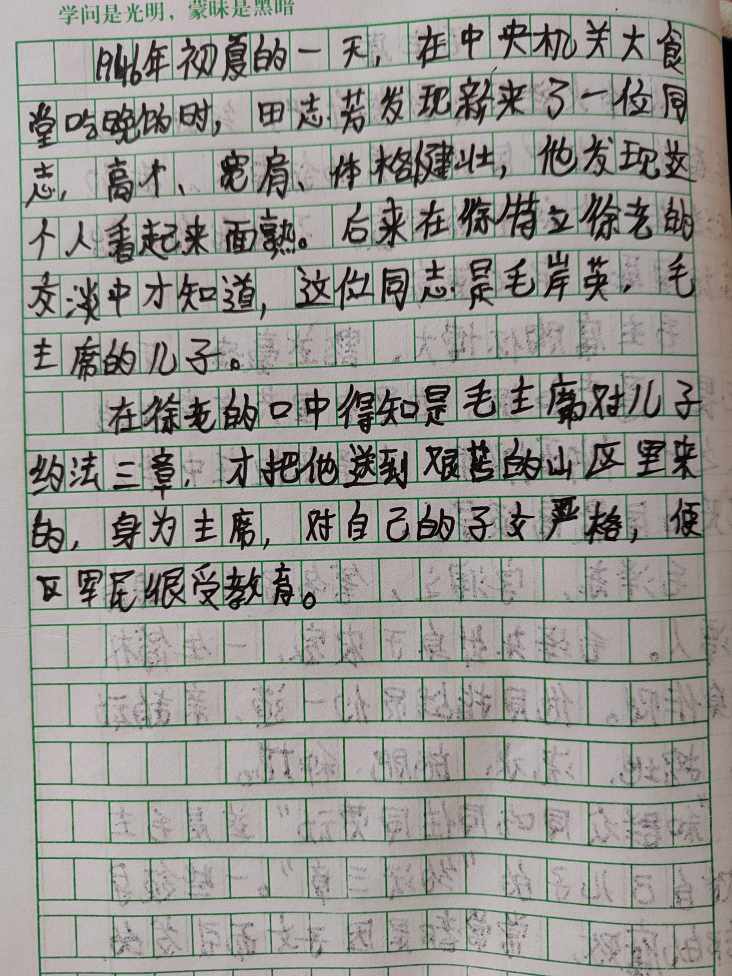 学问是光明，蒙昧是黑暗
1946年初夏的一天，在中央机关大食
堂吃晚饭时，田志芳发现新来了一位同
志，高个、宽肩、体格健壮，他发现这
个人看起来面熟。后来在徐特立徐老的
交淡中才知道，这位同志是毛岸英，毛
主席的儿子。
在徐老的口中得知是毛主席对儿子
约法三章，才把他送到艰苦的山区里来
的，身为主席，对自己的子女严格，使
区军民很受教育。